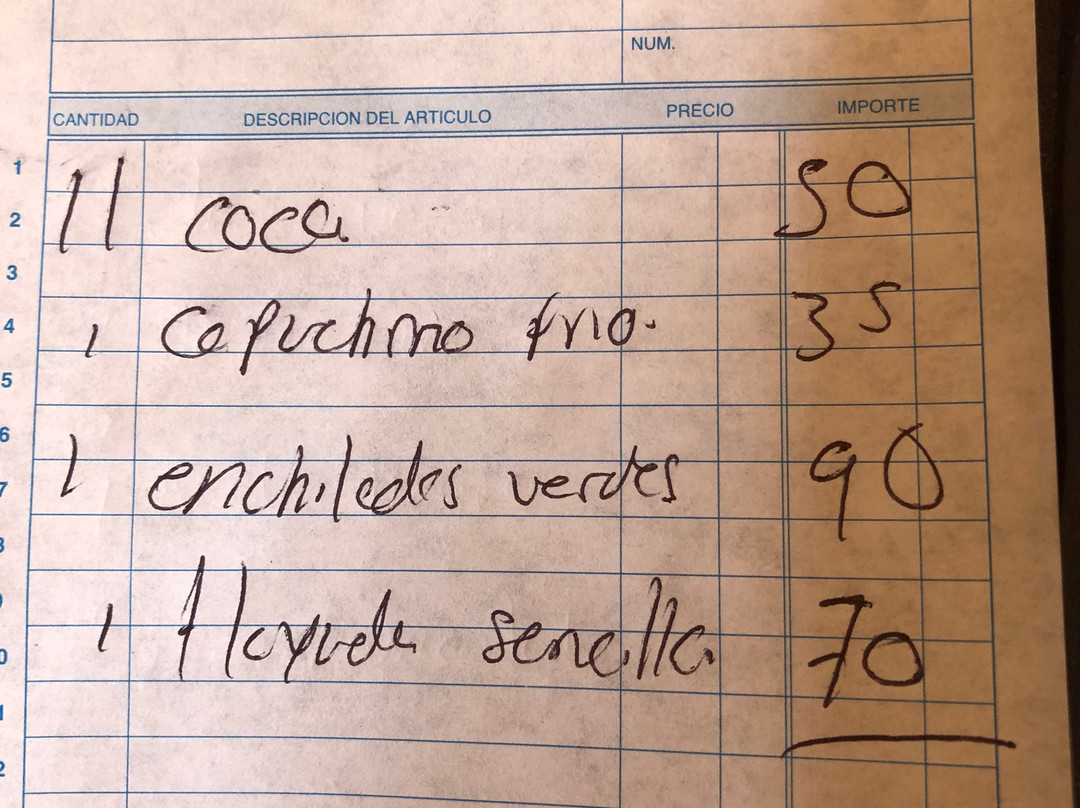 NUM.
CANTIDAD DESCRIPCION DEL ARTICULO PRECIO IMPORTE
1
2 11 coca 50
3
4 1 Capuchino frio. 35
5
6
7 1 enchiladas verdes 90
8
9
0 1 tlayuda sencilla 70
1
2